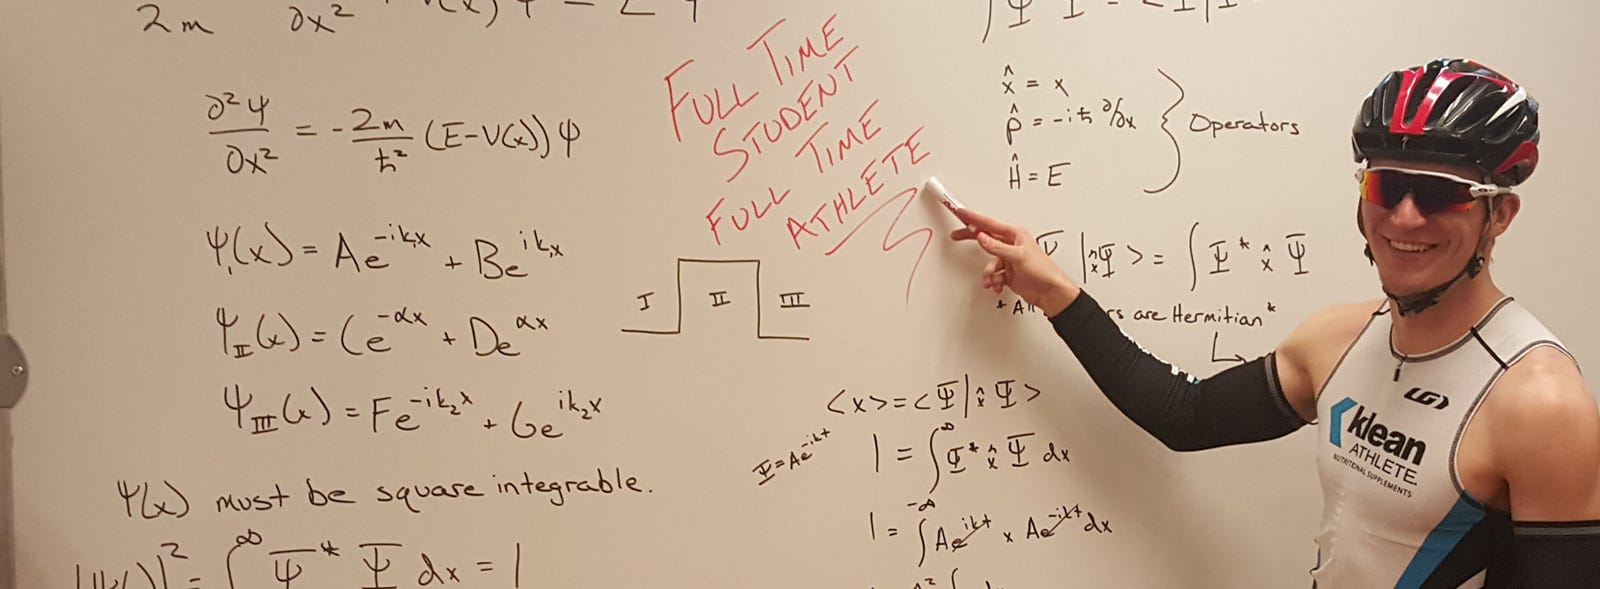 2m ∂x²
∂²ψ/∂x² = -2m/ħ² (E-V(x)) ψ
ψ₁(x) = Ae^-ik₁x + Be^ik₁x
ψ_II(x) = Ce^-αx + De^αx
ψ_III(x) = Fe^-ik₂x + Ge^ik₂x
ψ(x) must be square integrable.
∫^∞ Ψ* Ψ dx = 1
FULL TIME
STUDENT
FULL TIME
ATHLETE
I II III
x̂ = x
p̂ = -iħ ∂/∂x
Ĥ = E
Operators
|x̂Ψ> = ∫ Ψ* x̂ Ψ
are Hermitian*
<x> = <Ψ|x̂Ψ>
Ψ=Ae^-ikt
1 = ∫_-∞^∞ Ψ* x̂ Ψ dx
1 = ∫ Ae^ikt x Ae^-ikt dx
LG
klean
ATHLETE.
NUTRITIONAL SUPPLEMENTS